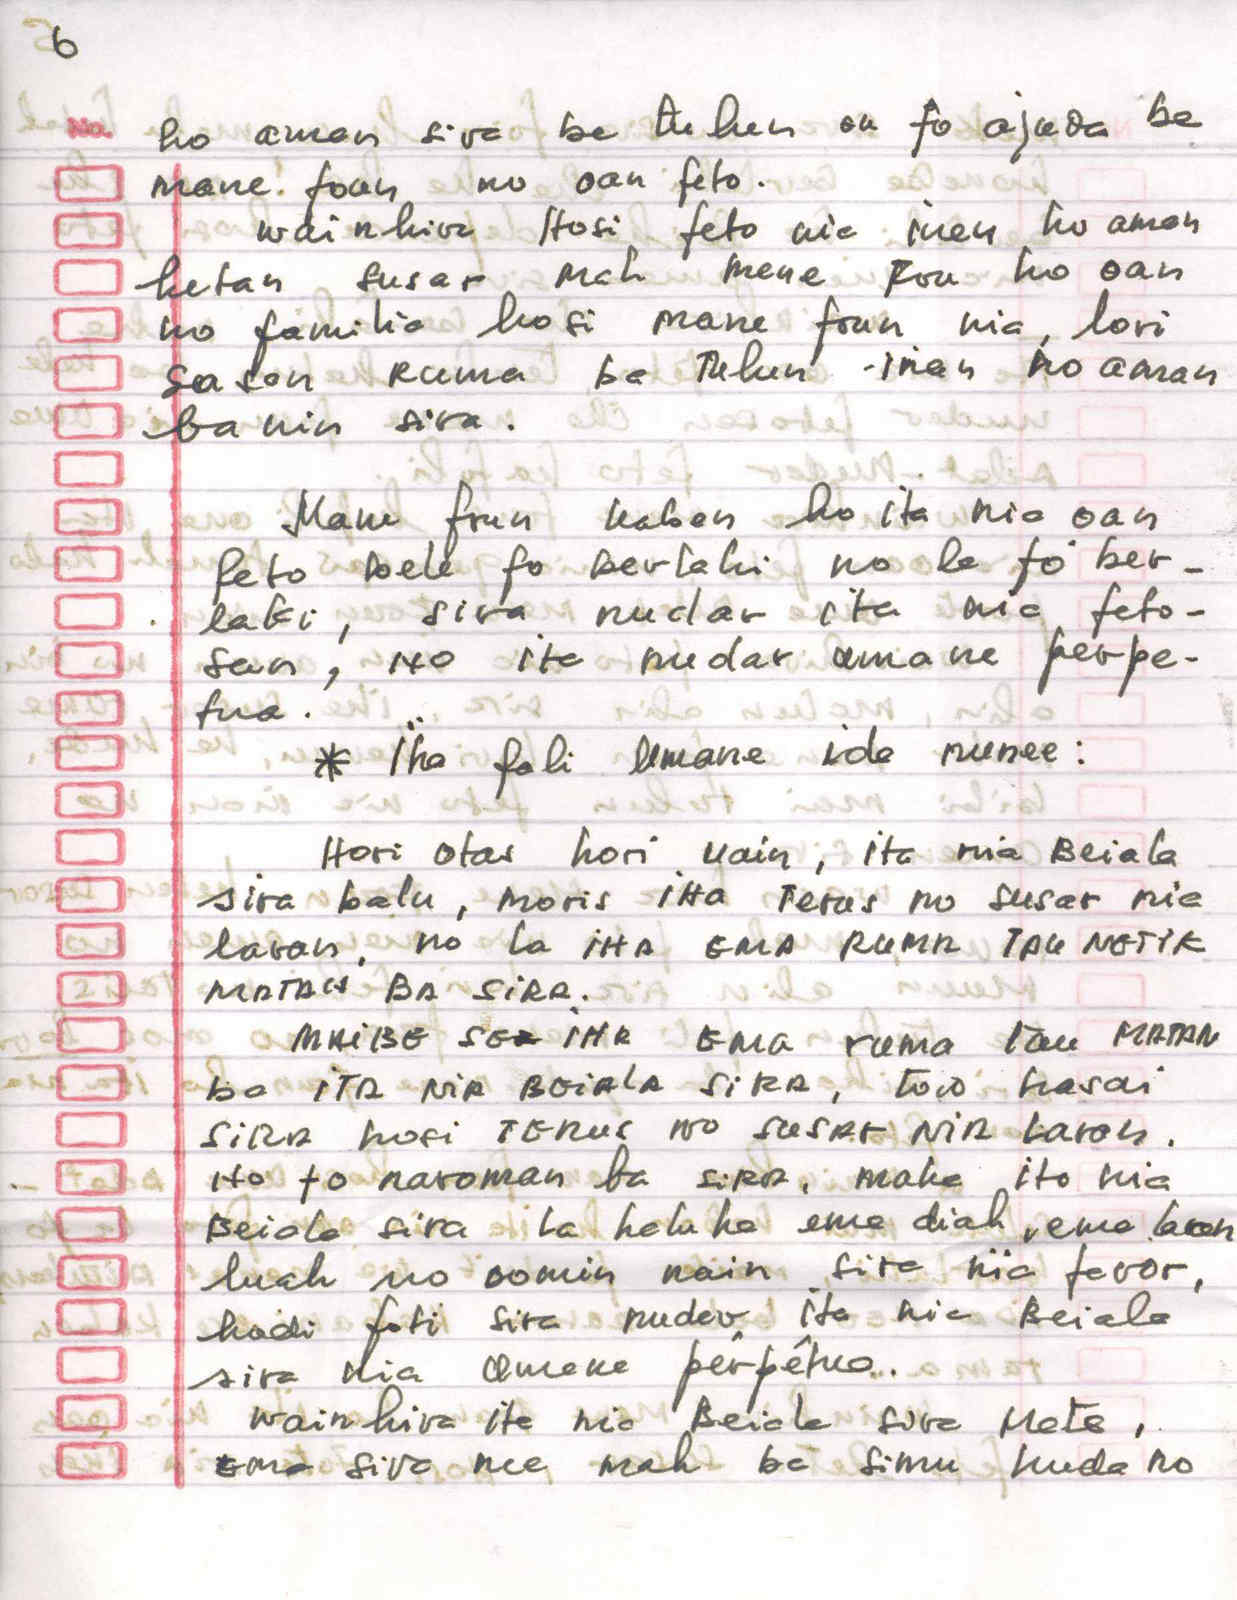 6
No.
ho aman sira ba tulun ou fo ajuda ba
mane foun no oan feto.
wainhira Hosi feto nia inan ho aman
hetan susar mak mane Foun ho oan
no familia hosi mane foun nia, lori
sasan Ruma ba Tulun inan ho aman
banin sira.
Mane foun kaben ho ita nia oan
feto bele fo berlaki no la fo ber-
laki, sira nudar ita nia feto-
san, Ho ita nudar umane perpe-
tua.
* Iha fali Umane ida nunee:
Hori otas hori uain, ita nia Beiala
sira balu, moris iHa Terus no susar nia
laran, no la iHA EMA RUMA TAU NETIK
MATAN BA SIRA.
MAIBE SE iHA EMA ruma tau MATAN
ba iTA NIA BEIALA SIRA, too hasai
SIRA hosi TERUS no SUSAR NIA Laran.
Ho fo naroman ba SIRA, maka ita nia
Beiala sira la haluha ema diak, ema laran
luak no domin nain sira nia favor,
hadi foti sira nudar ita nia Beiala
sira nia Umane perpétua.
wainhira ita nia Beiala sira Mate,
Ema sira nee mak ba simu kuda no